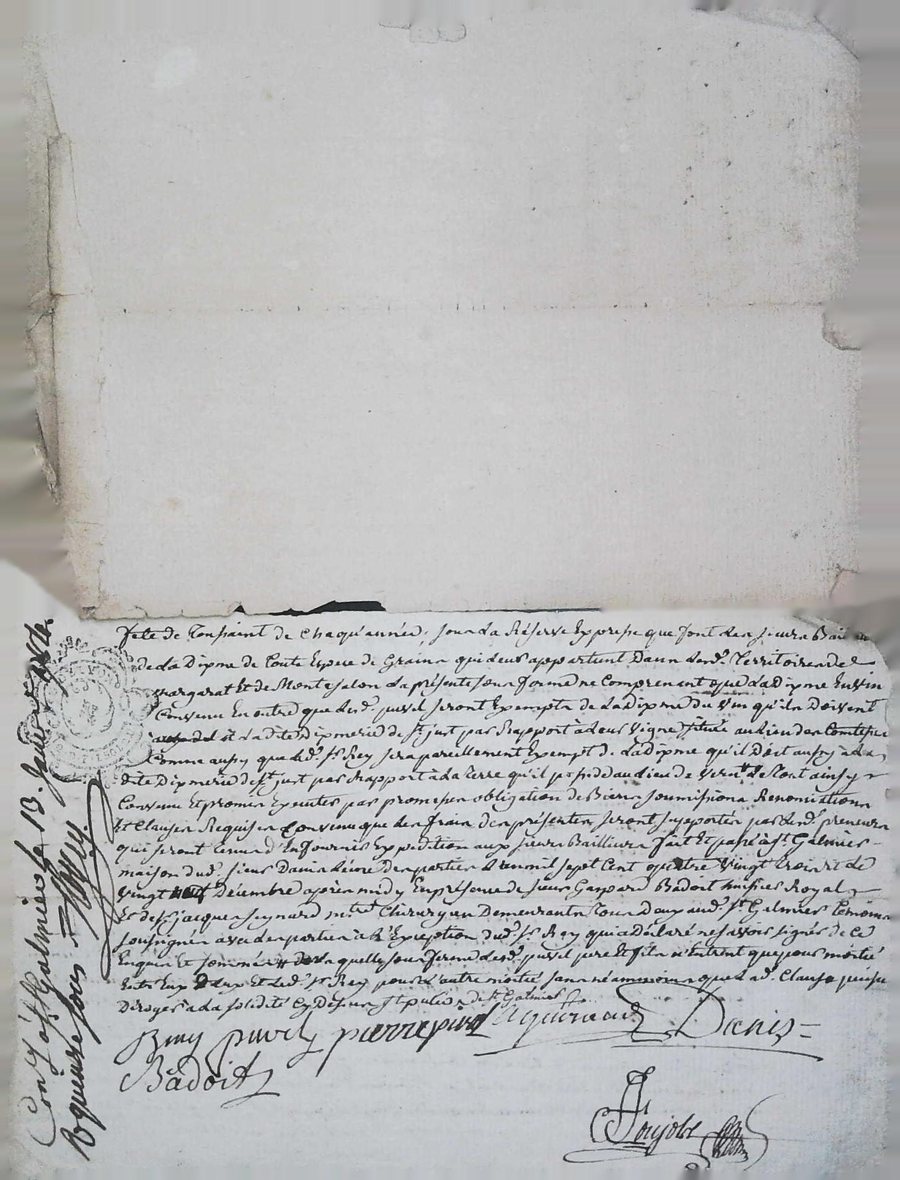 fete de Toussaint de chaqu'année, sous la Réserve Expresse que font les sieurs Bail
de la Dixme de toute Espece de Grains qui leurs appartient Dans les d. Territoires de
margarat Et de Montesalon la présente sous ferme ne Comprenant que la Dixme En vin
Convenu En outre que les d. juvel seront Exempts de la Dixme du Vin qu'ils Doivent
a la ditte Dixmerie de St just par Rapport a leur Vigne située au lieu des
Comme aussy que led. Sr Rey sera pareillement Exempt de la Dixme qu'il Doit aussy a la
dite Dixmerie de St just par Rapport a la terre qu'il possede au lieu de tout ainsy
Convenu Et promis Executer par promesses obligation de Biens soumissions Renonciations
Et Clauses Requises Convenu que les frais des présentes seront suportés par les d. preneurs
qui seront tenus d'En fournir Expedition aux sieurs Bailleurs fait Et passé a St Galmier
maison dud. sieur Danis l'un des parties L'an mil sept Cent quatre Vingt trois et le
Vingt Décembre apres midy En présence de sieur Gaspard Badoit huissier Royal
Et de Sr jacques seynard mtre Chirurgien Demeurants tous Deux aud. St Galmier témoins
soussignés avec les parties a L'Exception dud. Sr Rey qui a Déclaré ne savoir signer de ce
Enquis Et sommé laquelle sous ferme les d. juvel pere Et fils n'Entrent que pour moitié
Entr'Eux Et led. Sr Rey pour l'autre moitié sans néammoins que lad. Clause puisse
Déroger a la solidité Cy dessus St
juvel pierre juvel Danis
Badoit
Poujole
Con. a St Galmier le 13. 1784.
Reçu quinze sous